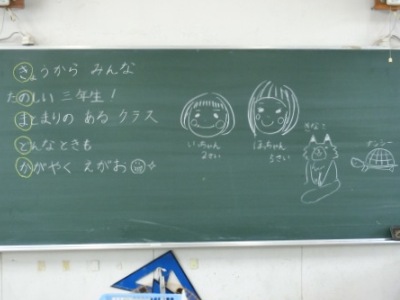 きょうから みんな
たのしい 三年生！
まとまりの ある クラス
どんなときも
かがやく えがお
いっちゃん
2さい
はっちゃん
5さい
きなこ
ナンシー